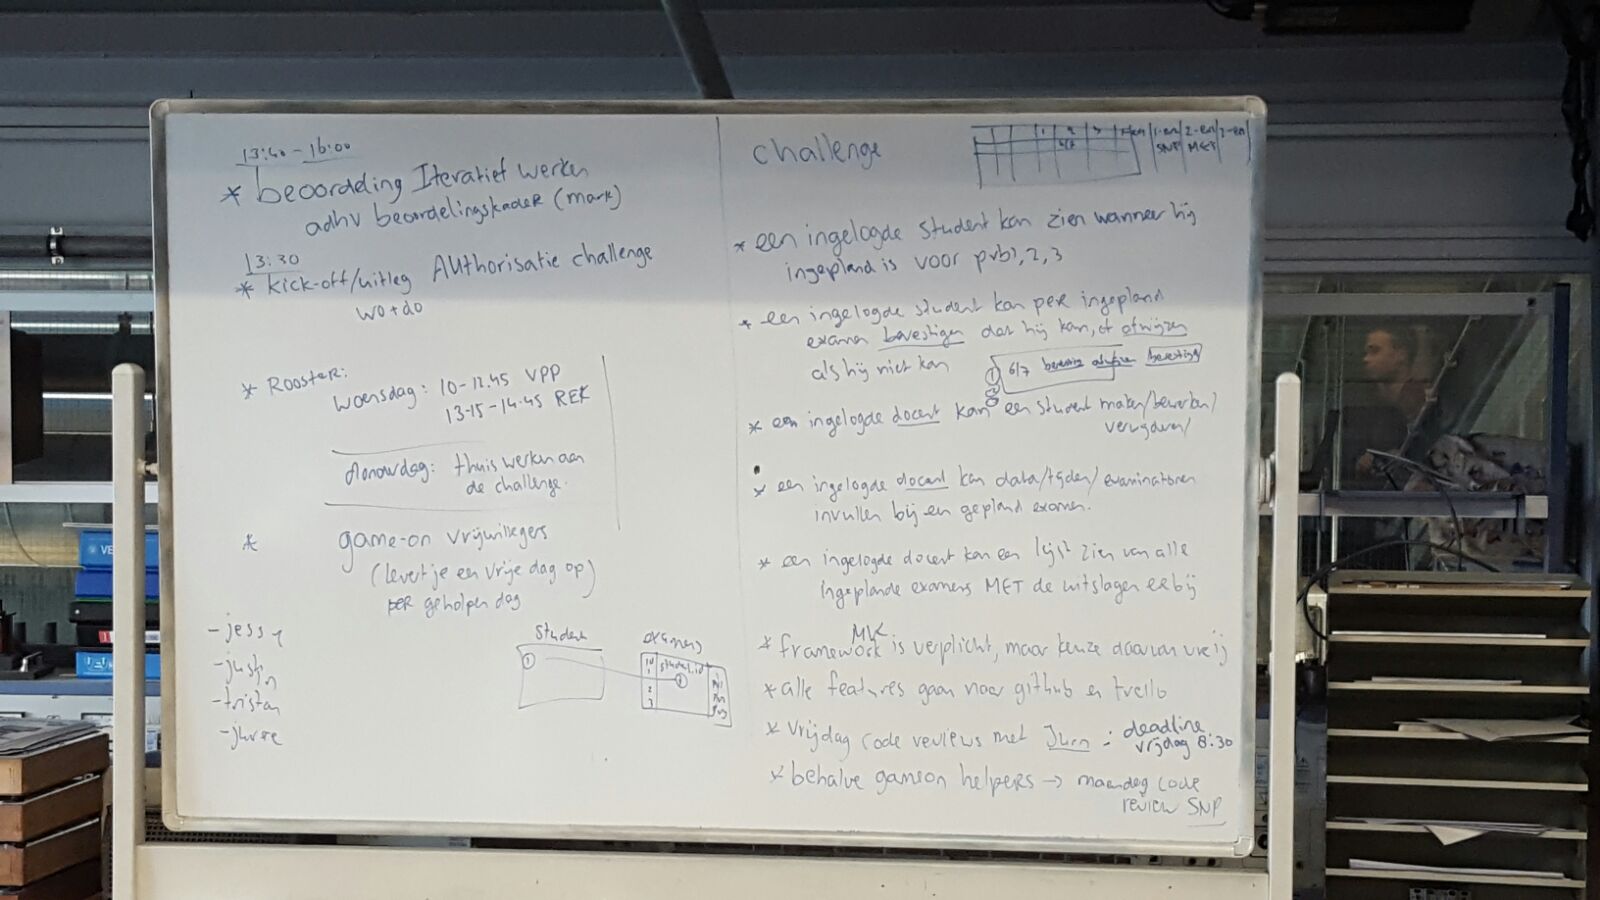 13:40 - 16:00
* beoordeling Iteratief werken
adhv beoordelingskader (mark)
13:30
* kick-off/uitleg Authorisatie challenge
wo + do
* Rooster:
Woensdag: 10-12.45 VPP
13.15 - 14.45 REK
donderdag: thuis werken aan
de challenge.
* game-on vrijwilligers
(levert je een vrije dag op)
per geholpen dag
- jessy
- justin
- tristan
- jurre
Student
1
examens
ID student_id
1 1
2
3
challenge
1 2 3
6/7
1-en 2-en 3-en
SNP MET
* een ingelogde student kan zien wanneer hij
ingepland is voor pvb1, 2, 3
* een ingelogde student kan per ingepland
examen bevestigen dat hij kan, of afwijzen
als hij niet kan
1 6/7 bevestig afwijzen bevestigd
2
* een ingelogde docent kan een student maken/bewerken/
verwijderen/
* een ingelogde docent kan data/tijden/examinatoren
invullen bij een gepland examen.
* een ingelogde docent kan een lijst zien van alle
ingeplande examens MET de uitslagen erbij
* framework is verplicht, maar keuze daarvan vrij
* alle features gaan naar github en trello
* Vrijdag code reviews met Jurn : deadline
vrijdag 8:30
* behalve gameon helpers → maandag code
review SNP